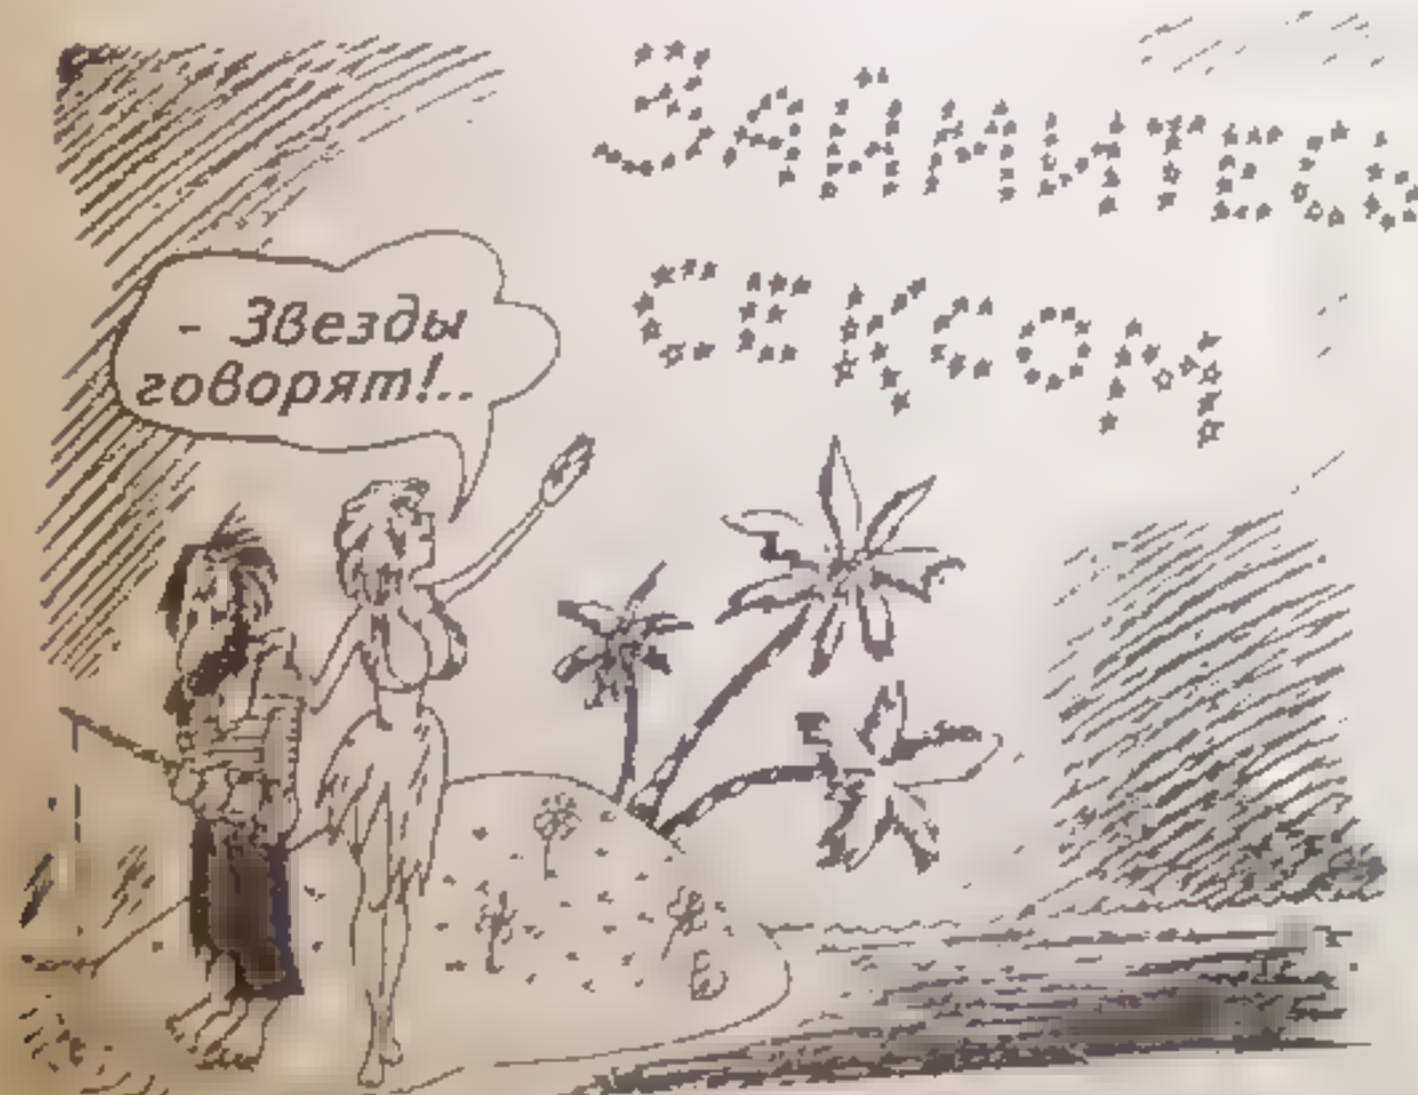 ЗАЙМИТЕСЬ
СЕКСОМ
- Звезды
говорят!..